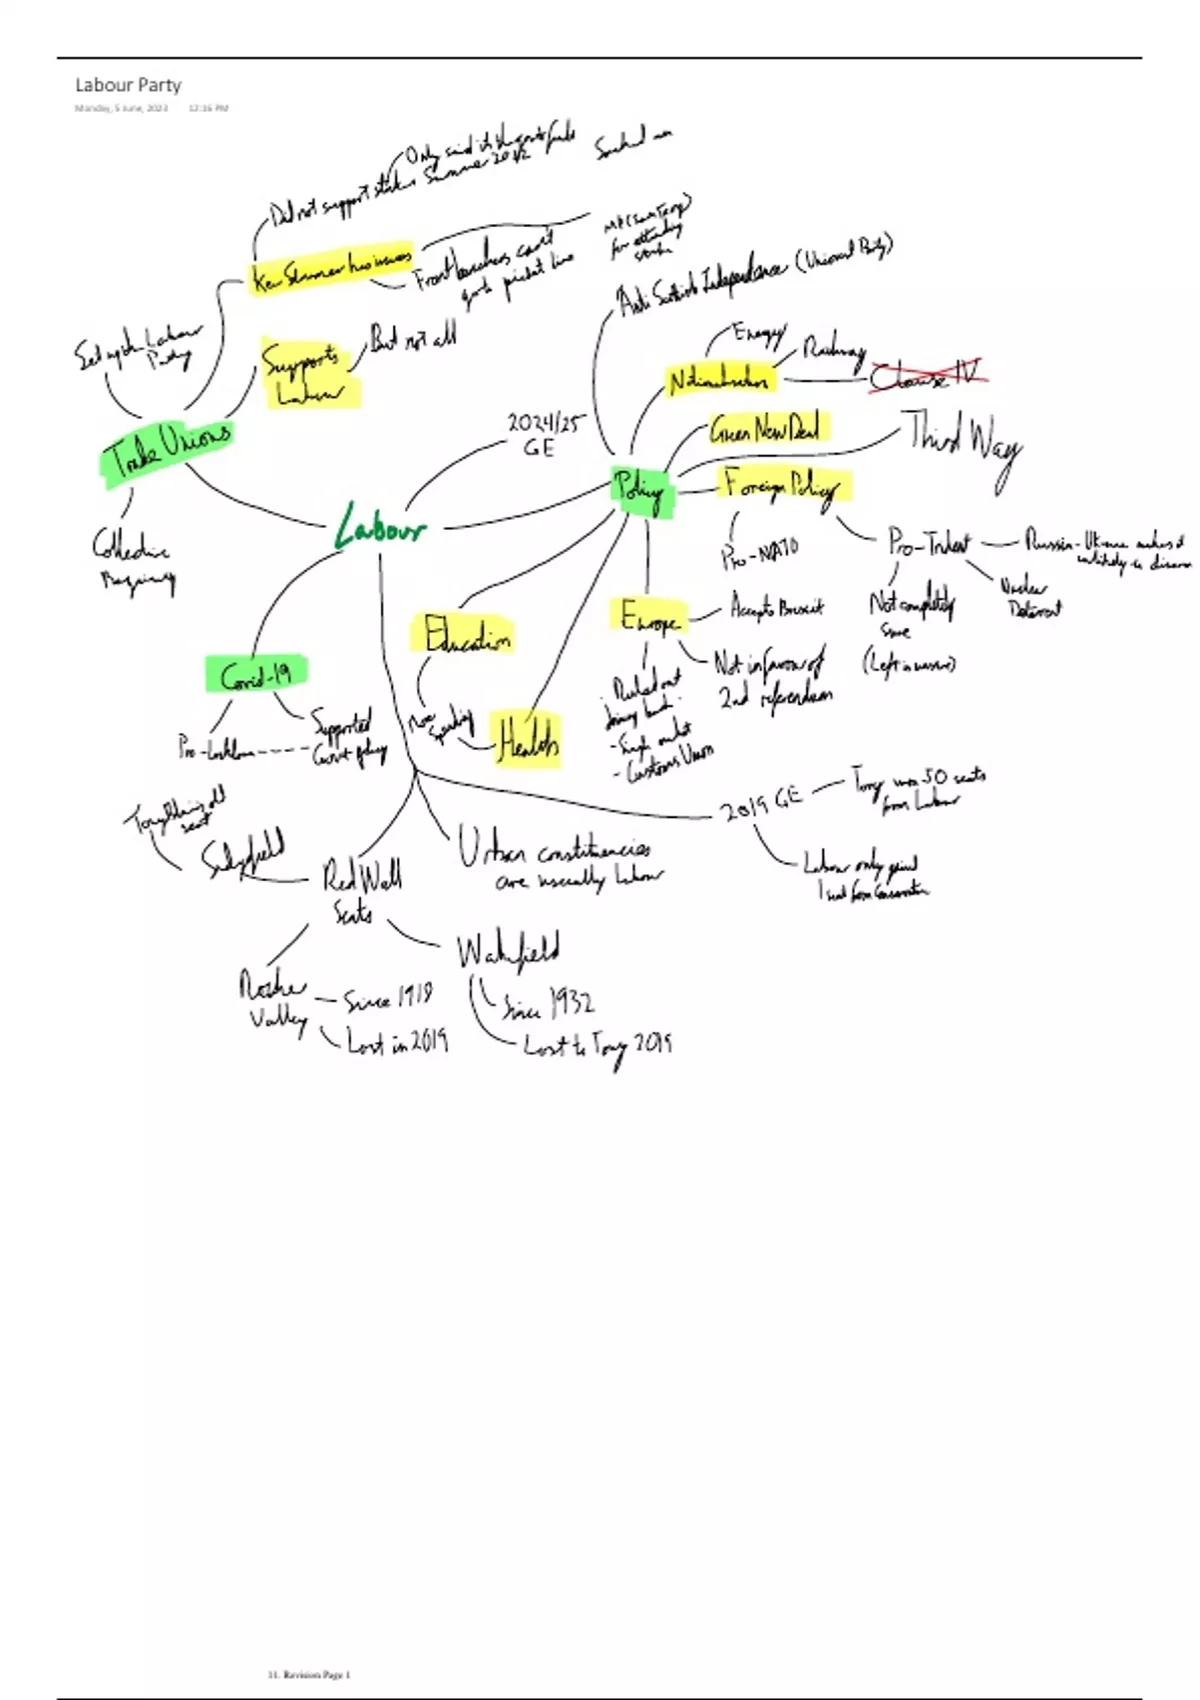 Labour Party
Monday, 5 June, 2023 12:16 PM
Only said it's the govts fault
Did not support strikes Summer 2022
Sacked an
MP (Sam Tarry)
for attending
strike
Keir Starmer
Frontbenchers can't
go to picket line
Set up the Labour
Party
Supports
Labour
But not all
Trade Unions
Collective
Bargaining
2024/25
GE
Labour
Policy
Anti Scottish Independence (Unionist Party)
Nationalisation
Energy
Railway
Clause IV
Green New Deal
Third Way
Foreign Policy
Pro-NATO
Pro-Trident
Russia-Ukraine makes it
unlikely to disarm
Nuclear
Deterrent
Not completely
sure
(Left is unsure)
Europe
Accepts Brexit
Not in favour of
2nd referendum
Ruled out
joining back
- Single market
- Customs Union
Education
More
Spending
Health
Covid-19
Pro-Lockdown
Supported
Govt policy
2019 GE
Tory won 50 seats
from Labour
Labour only gained
1 seat from Conservative
Urban constituencies
are usually Labour
Red Wall
Seats
Sedgefield
Tony Blair's old
seat
Rother
Valley
Since 1918
Lost in 2019
Wakefield
Since 1932
Lost to Tory 2019
11. Revision Page 1